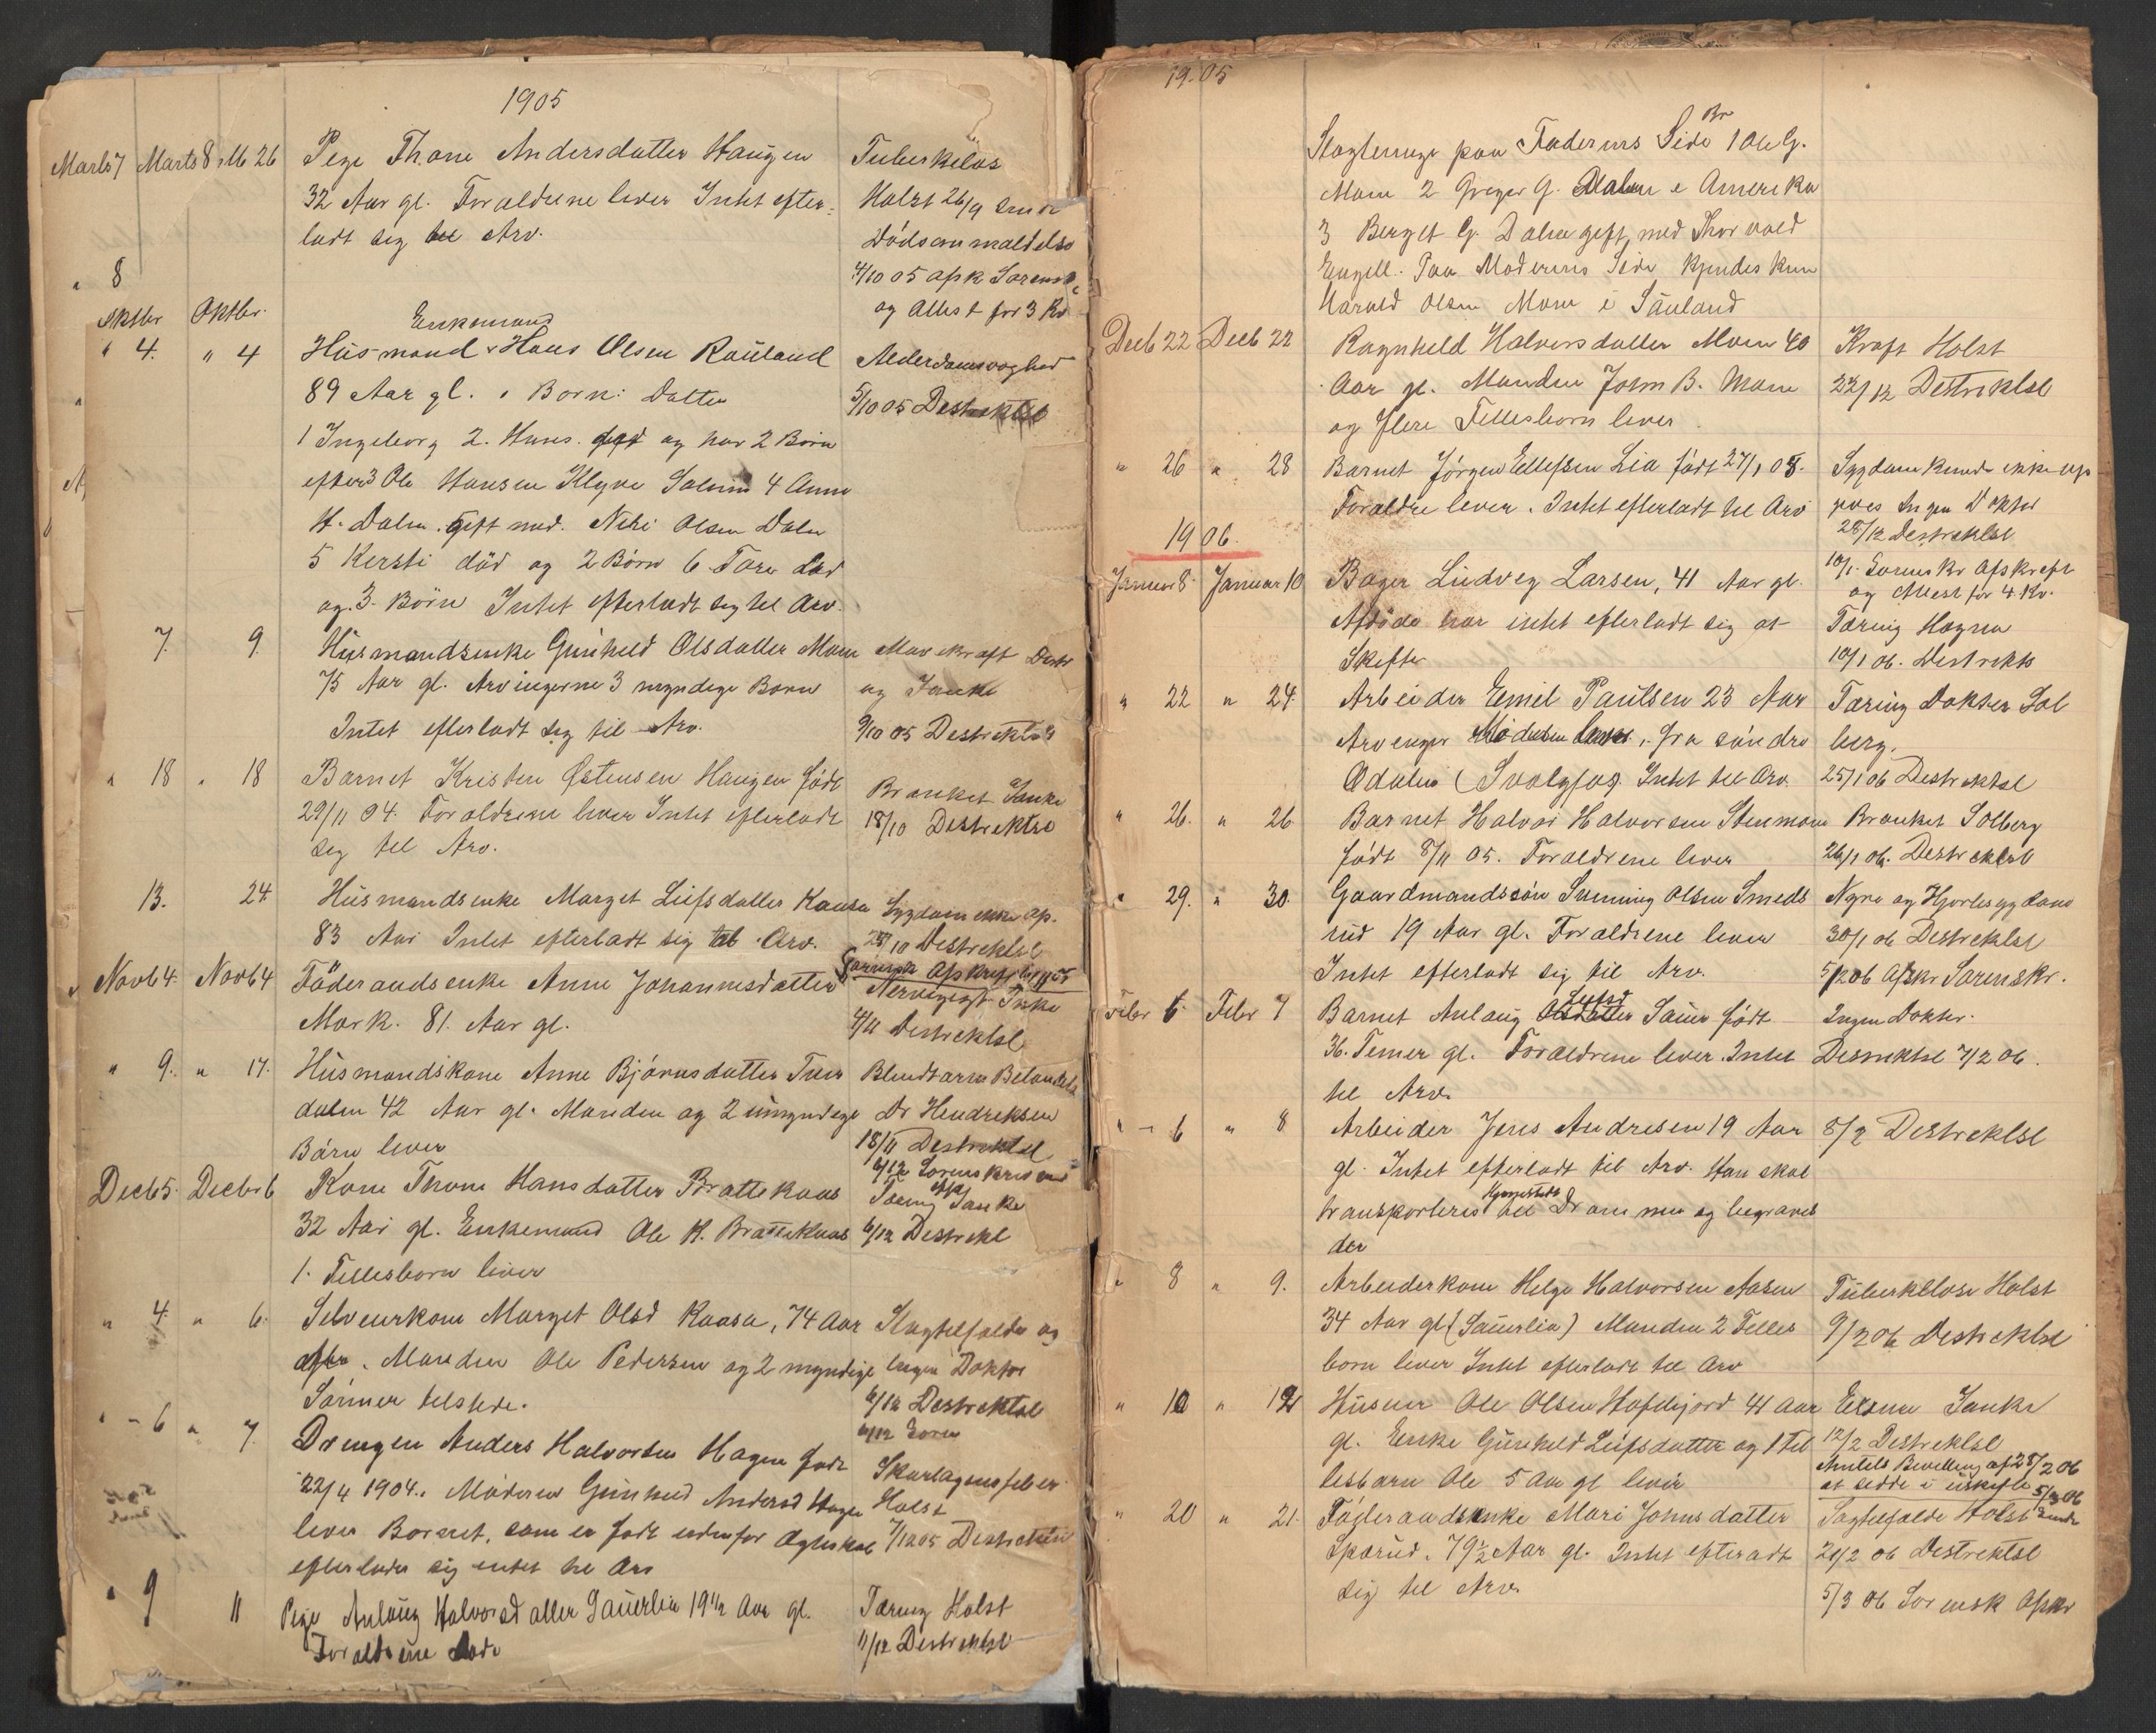 1905
Marts 7 Marts 8 26 Pige Thone Andersdatter Haugen Tuberkulos
32 Aar gl. Foraldrene lever Intet efter- Holst 26/9
ladt sig til Arv. Dødsanmeldelse
" 8 4/10 05 Afsk Sorensk
og Attest for 3 Kr
Oktbr Oktbr. Enkemand
" 4. " 4 Husmand Hans Olsen Rauland Alderdomsvaghed
89 Aar gl. Born: Datter 5/10 05 Destriktsl
1 Ingeborg 2. Hans. død og har 2 Born
efter 3 Ole Hansen Klyve Solum 4 Anne
H. Dalen. gift med. Nils Olsen Dalen
5 Kersti død og 2 Børn 6 Tore død
og 3 Børn Intet efterladt sig til Arv.
7. 9. Husmandsenke Gunhild Olsdatter Moen
75 Aar gl. Arvingerne 3 myndige Born og Janke
Intet efterladt sig til Arv. 9/10 05 Destriktsl
" 18 " 18 Barnet Kristen Østensen Haugen født Bronket Janke
29/11 04. Foraldrene lever Intet efterladt 18/10 Destriktsl
sig til Arv.
13. 24 Husmandsenke Marget Leifsdatter Kaasa Sygdom ikke op.
83 Aar Intet efterladt sig til Arv. 25/10 Destriktsl
Sorensk Afskrift
Novb 4. Novb 4 Føderaadsenke Anne Johannesdatter Nervegigt Janke
Mork. 81. Aar gl. 4/11 Destriktsl
" 9. " 17. Husmandskone Anne Bjørnsdatter Tuer Blindtarm
dalen 42 Aar gl. Manden og 2 umyndige Dr Hendriksen
Børn lever 18/11 Destriktsl
6/12 Sorenskriv
Decb 5. Decbr 6 Kone Thone Hansdatter Brattekaas Tæring Janke
32 Aar gl. Enkemand Ole K. Brattekaas 6/12 Destriktsl
1. Fellesbarn lever
" 4. " 6. Selveierkone Marget Olsd Kaasa, 74 Aar Slagtilfælde og
Manden Ole Pedersen og 2 myndige Ingen Doktor
Sønner tilstede. 6/12 Destriktsl
6/12 Soren
" - 6 " 7. Drengen Anders Halvorsen Hagen født Skarlagensfeber
22/4 1904. Moderen Gunhild Andersd Hagen Holst
lever Barnet, som er født udenfor Ægteskab 7/12 05 Destriktsl
efterlader sig intet til Arv
" 9 11 Pige Anlaug Halvorsdatter Sauerlia 19 1/2 Aar gl. Tæring Holst
Foraldrene døde 11/12 Destriktsl
19.05
Br
Slagtninge paa Faderens Side 1 Ole G.
Moen 2 Greger G. Dalen i Amerika
3 Berget G. Dalen gift med Thorvald
Engell. Paa Moderens Side kjendes kun
Harald Olsen Moen i Sauland
Decb 22 Decb 22 Ragnhild Halvorsdatter Moen 40 Kraft Holst
Aar gl. Manden John B. Moen 22/12 Destriktsl
og flere Fellesborn lever
" 26 " 28 Barnet Jørgen Ellefsen Lia født 27/1 05. Sygdom kunde ikke op
Foraldre lever. Intet efterladt til Arv gives Ingen Doktor
28/12 Destriktsl
1906.
Januar 8. Januar 10 Bager Ludvig Larsen, 41 Aar gl. 10/1. Sorenskr Afskrift
og Attest for 4 Kr.
Afdøde har intet efterladt sig at Tæring Hagna
Skifte 10/1 06. Destrikts
" 22 " 24. Arbeider Emil Paulsen 23 Aar Tæring Dokter Sol
Arvinger Moderen lever, fra søndre berg.
Odalen (Svolgfos) Intet til Arv. 25/1 06 Destriktsl
" 26. " 26 Barnet Halvor Halvorsen Stenmoen Bronket Solberg
født 8/11 05. Foraldrene lever 26/1 06. Destriktsl
" 29. " 30. Gaardmandssøn Svenning Olsen Smeds Nyre og Hjertesygdom
rud 19 Aar gl. Foraldrene lever 30/1 06 Destriktsl
Intet efterladt sig til Arv. 5/2 06 Afskr Sorenskr.
Leifsd
Febr 6. Febr 7 Barnet Anlaug Olsdatter Sauer født Ingen Dokter.
36. Temer gl. Foraldrene lever Intet Destriktsl 7/2 06.
til Arv.
" - 6 " 8 Arbeider Jens Andresen 19 Aar 8/2 Destriktsl
gl. Intet efterladt til Arv. Han skal
Hjemstedet
transporteres til Drammen og begraves
der
" 8 " 9. Arbeiderkone Helge Halvorsen Aasen Tuberkelose Holst
34 Aar gl (Sauerlia) Manden 2 Felles 9/2 06 Destriktsl
born lever Intet efterladt til Arv
" 10 " 12 Husmr Ole Olsen Hafshjord 41 Aar Janke
gl. Enke Gunhild Leifsdatter og 1 Fel 12/2 Destriktsl
Amtets Bevilling af 25/2 06
lesbarn Ole 5 Aar gl lever at sidde i uskifte 5/3 06
" 20 " 21. Føderaadsenke Mari Johnsdatter Slagtilfælde Holst
Sparud. 79 1/2 Aar gl. Intet efterladt 21/2 06 Destriktsl
sig til Arv. 5/3 06 Sorensk Afskr